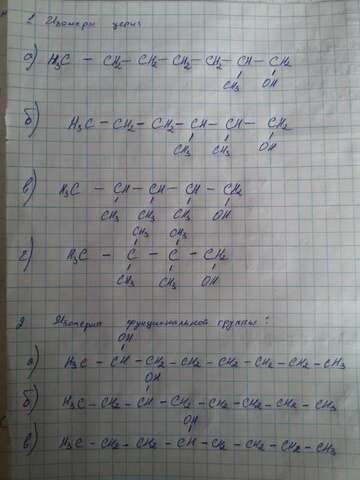 1 Изомеры цепи
а) H₃C – CH₂ – CH₂ – CH₂ – CH₂ – CH – CH₂
CH₃ OH
б) H₃C – CH₂ – CH₂ – CH – CH – CH₂
CH₃ CH₃ OH
в) H₃C – CH – CH – CH – CH₂
CH₃ CH₃ CH₃ OH
CH₃ CH₃
г) H₃C – C – C – CH₂
CH₃ CH₃ OH
2 Изомерия функциональной группы:
OH
а) H₃C – CH – CH₂ – CH₂ – CH₂ – CH₂ – CH₂ – CH₃
OH
б) H₃C – CH₂ – CH – CH₂ – CH₂ – CH₂ – CH₂ – CH₃
OH
в) H₃C – CH₂ – CH₂ – CH – CH₂ – CH₂ – CH₂ – CH₃